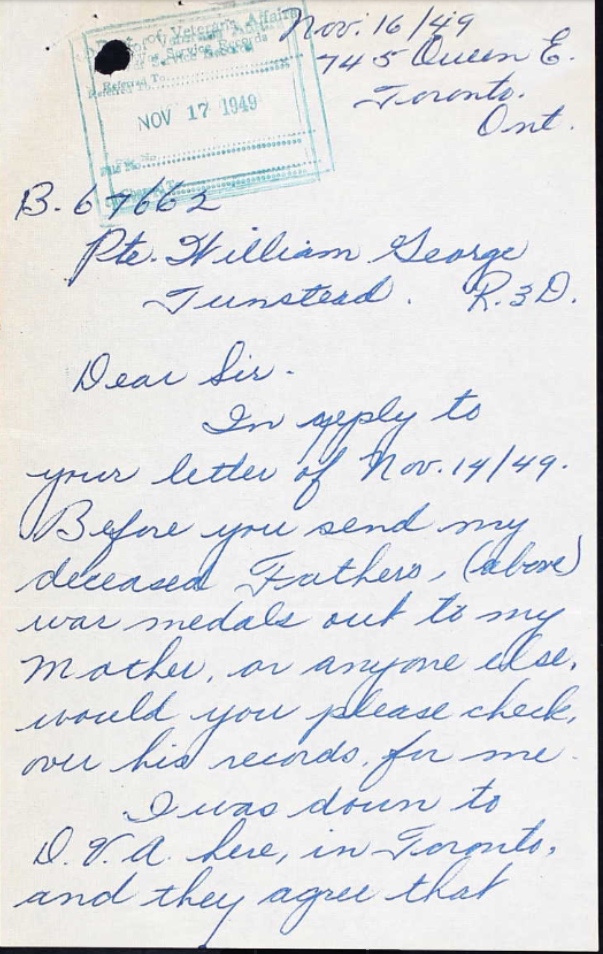 of Veteran's Affairs
War Service Records
Referred To
NOV 17 1949
Nov. 16/49
745 Queen E.
Toronto.
Ont.
B-67662
Pte. William George
Tunstead. R.3D.
Dear Sir.
In reply to
your letter of Nov. 14/49.
Before you send my
deceased Fathers, (above)
war medals out to my
Mother, or anyone else,
would you please check,
over his records, for me.
I was down to
D.V.A. here, in Toronto,
and they agree that